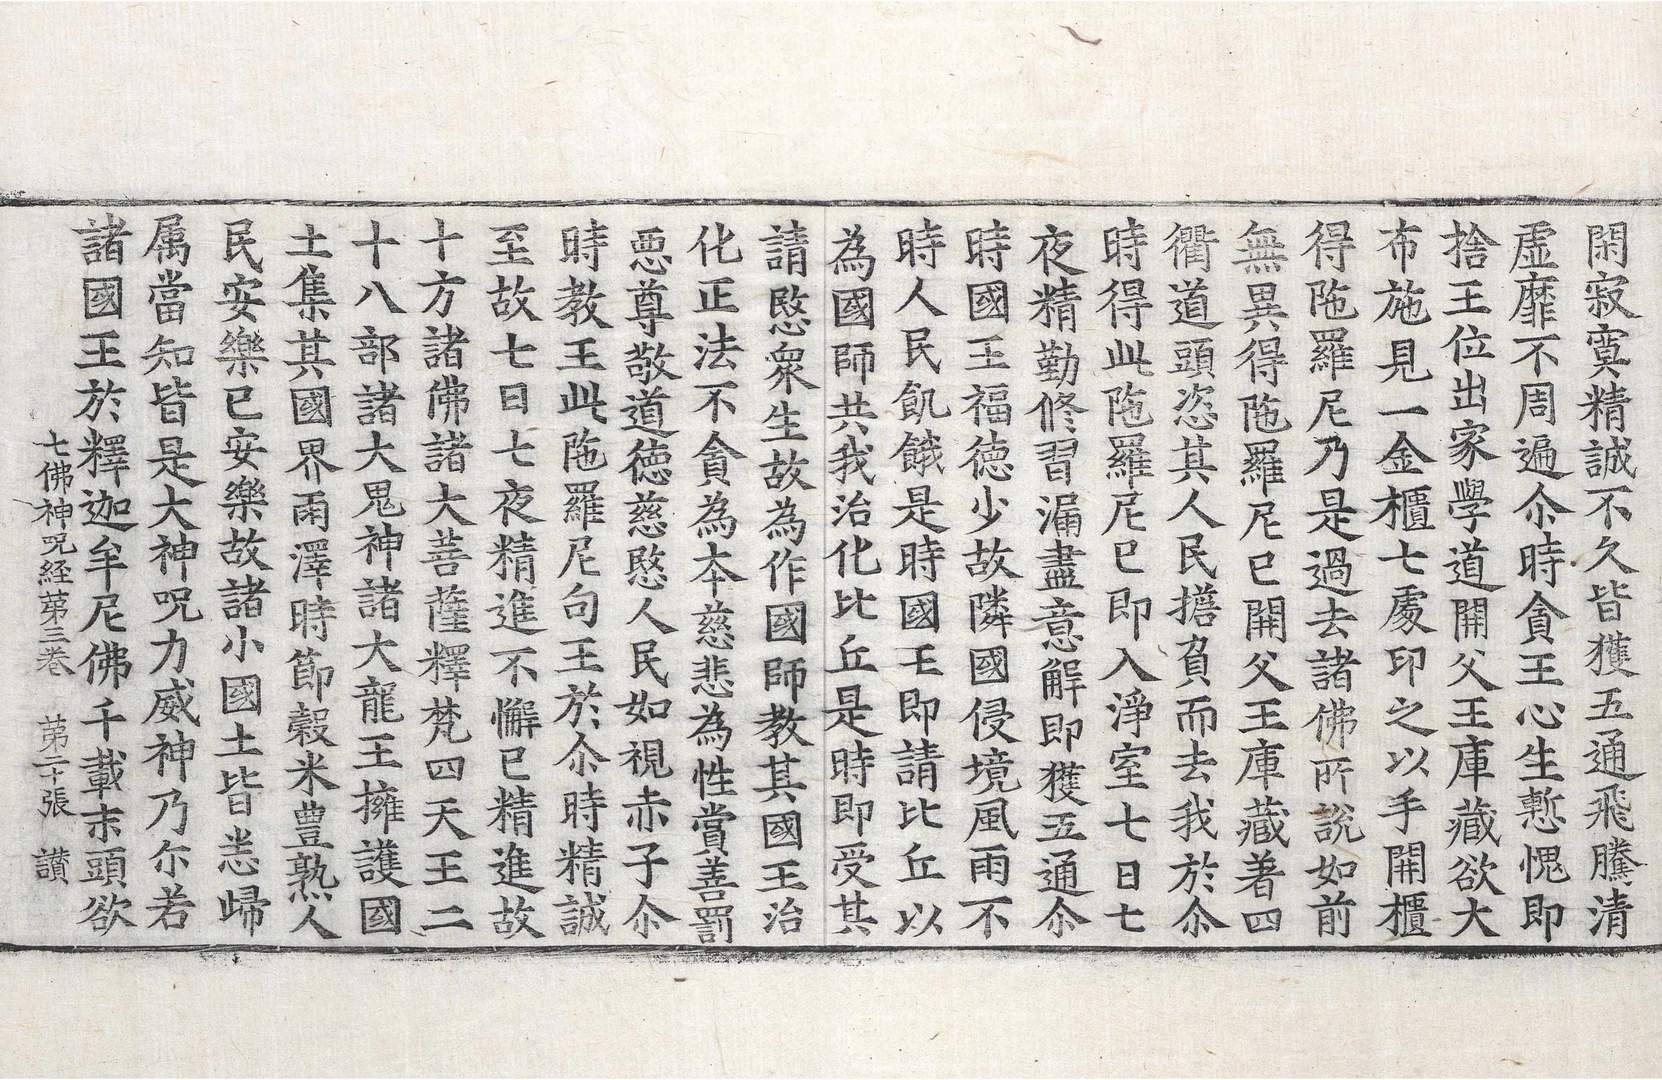 閑寂寞精誠不久皆獲五通飛騰清
虛靡不周遍尒時貪王心生慙愧即
捨王位出家學道開父王庫藏欲大
布施見一金櫃七處印之以手開櫃
得陁羅尼乃是過去諸佛所說如前
無異得陁羅尼已開父王庫藏著四
衢道頭恣其人民擔負而去我於尒
時得此陁羅尼已即入淨室七日七
夜精勤修習漏盡意解即獲五通尒
時國王福德少故隣國侵境風雨不
時人民飢餓是時國王即請比丘以
為國師共我治化比丘是時即受其
請愍衆生故為作國師教其國王治
化正法不貪為本慈悲為性賞善罰
惡尊敬道德慈愍人民如視赤子尒
時教王此陁羅尼句王於尒時精誠
至故七日七夜精進不懈已精進故
十方諸佛諸大菩薩釋梵四天王二
十八部諸大鬼神諸大龍王擁護國
土集其國界雨澤時節穀米豊熟人
民安樂已安樂故諸小國土皆悉歸
属當知皆是大神呪力威神乃尒若
諸國王於釋迦牟尼佛千載末頭欲
七佛神呪経苐三卷 苐二十張 讃